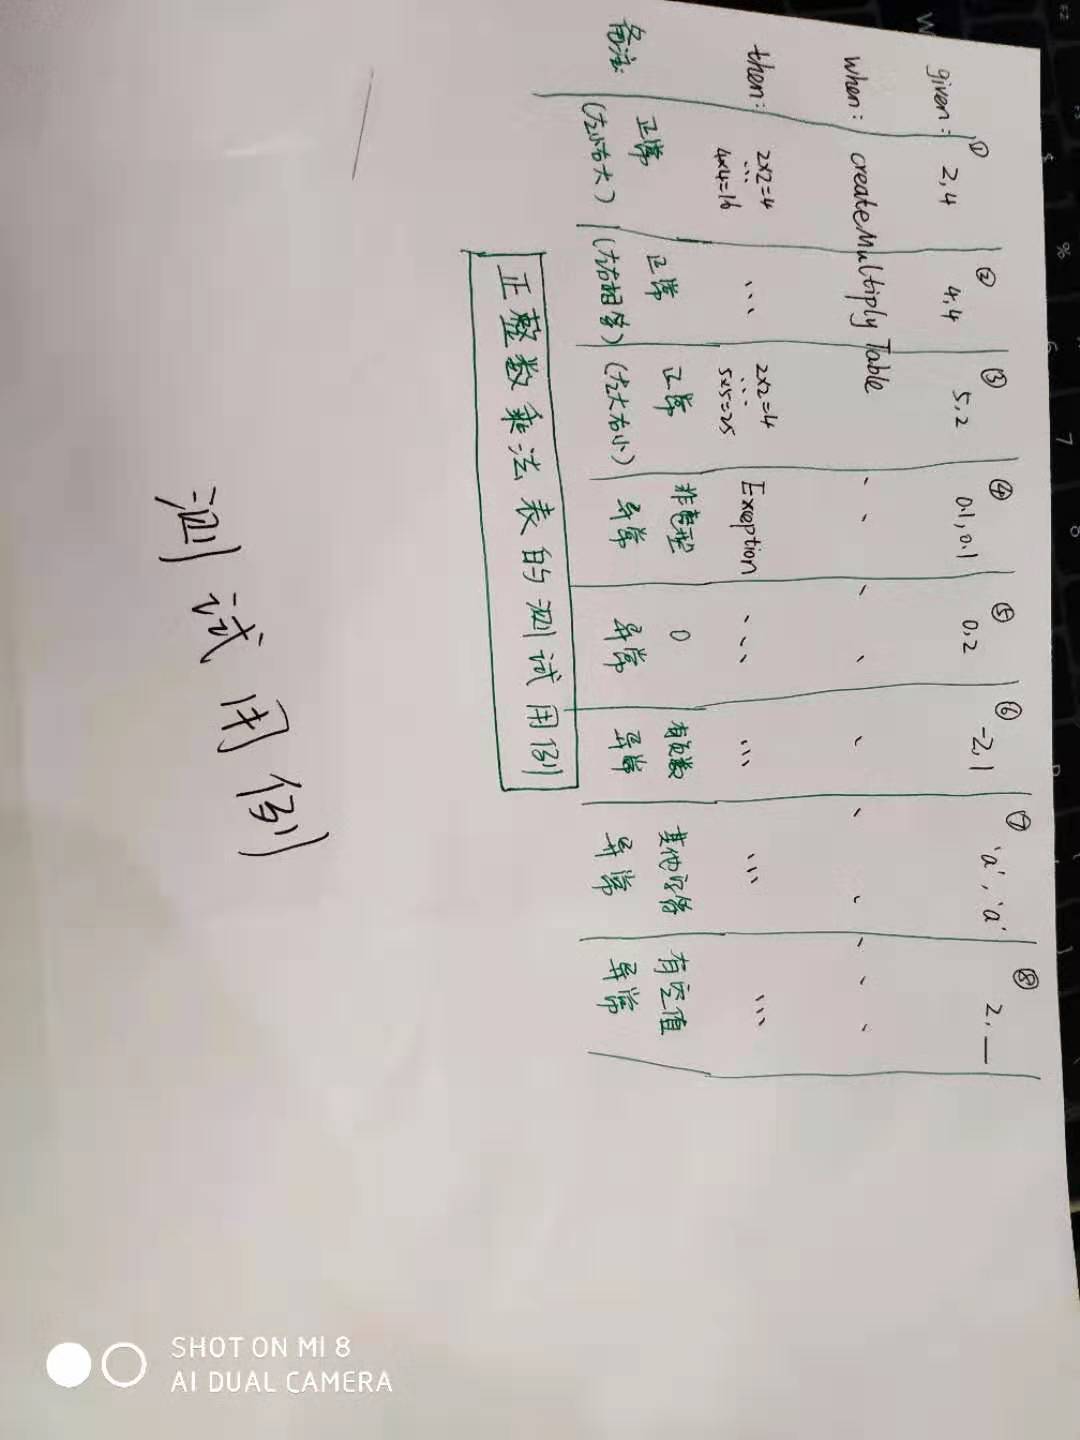 given: ① 2,4 ② 4,4 ③ 5,2 ④ 0.1,0.1 ⑤ 0,2 ⑥ -2,1 ⑦ 'a','a' ⑧ 2,—
when: createMultiply Table
then: 2×2=4 ... 4×4=16 ... 2×2=4 ... 5×5=25 Exception
备注: 正常 (左小右大) 正常 (左右相等) 正常 (左大右小) 非整型 异常 0 异常 有负数 异常 其他字符 异常 有空值 异常
正整数乘法表的测试用例
测试用例
SHOT ON MI 8
AI DUAL CAMERA